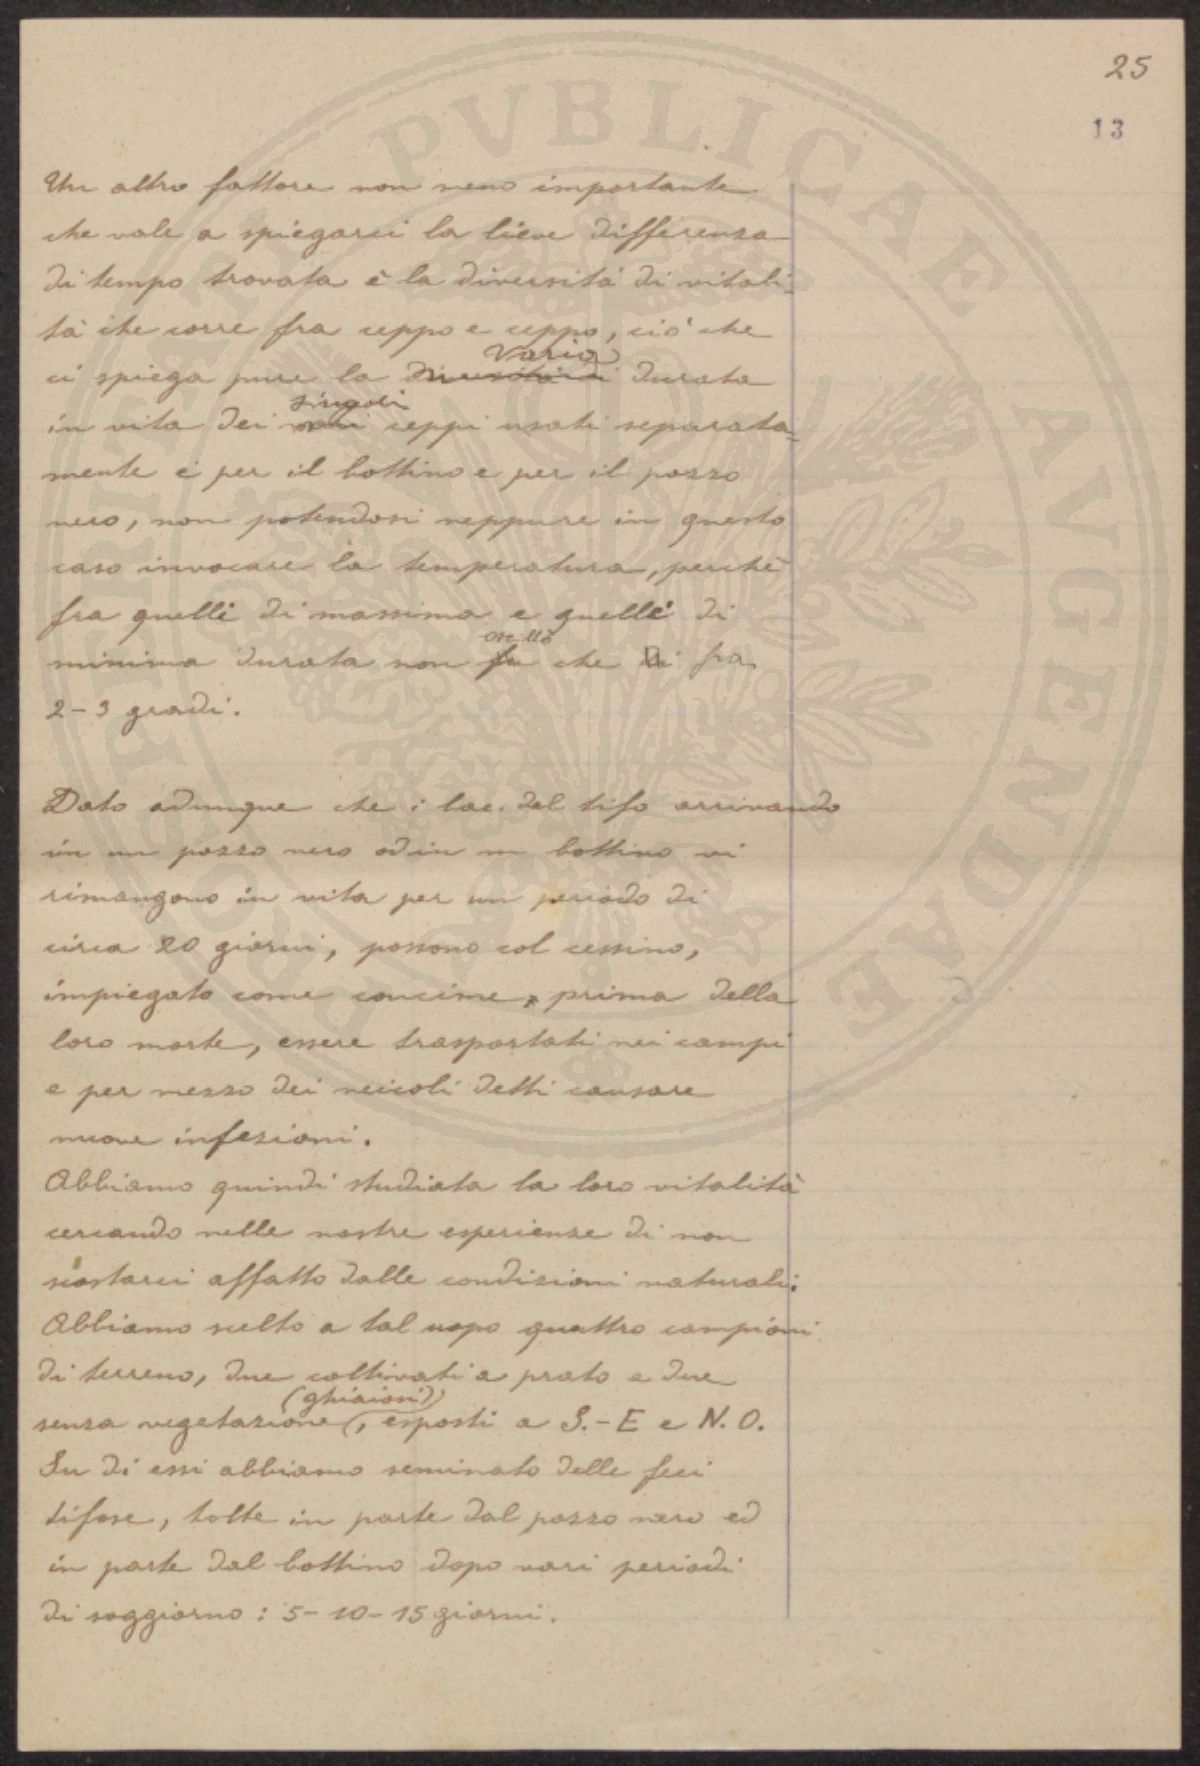 25
13
Un altro fattore non meno importante
che vale a spiegarci la lieve differenza
di tempo trovata è la diversità di vitali-
tà che corre fra ceppo e ceppo, ciò che
varia
ci spiega pure la diversità di durata
singoli
in vita dei vari ceppi usati separata-
mente e per il bottino e per il pozzo
nero, non potendosi neppure in questo
caso invocare la temperatura, perchè
fra quelli di massima e quelli di
oscillò
minima durata non fu che di fra
2-3 gradi.
Dato adunque che i bac. del tifo arrivando
in un pozzo nero od in un bottino vi
rimangono in vita per un periodo di
circa 20 giorni, possono col cessino,
impiegato come concime, prima della
loro morte, essere trasportati nei campi
e per mezzo dei veicoli detti causare
nuove infezioni.
Abbiamo quindi studiata la loro vitalità
cercando nelle nostre esperienze di non
scostarci affatto dalle condizioni naturali.
Abbiamo scelto a tal uopo quattro campioni
di terreno, due coltivati a prato e due
(ghiaiosi)
senza vegetazione, esposti a S.-E e N.O.
Su di essi abbiamo seminato delle feci
tifose, tolte in parte dal pozzo nero ed
in parte dal bottino dopo vari periodi
di soggiorno: 5-10-15 giorni.
PVBLICAE AVGENDAE